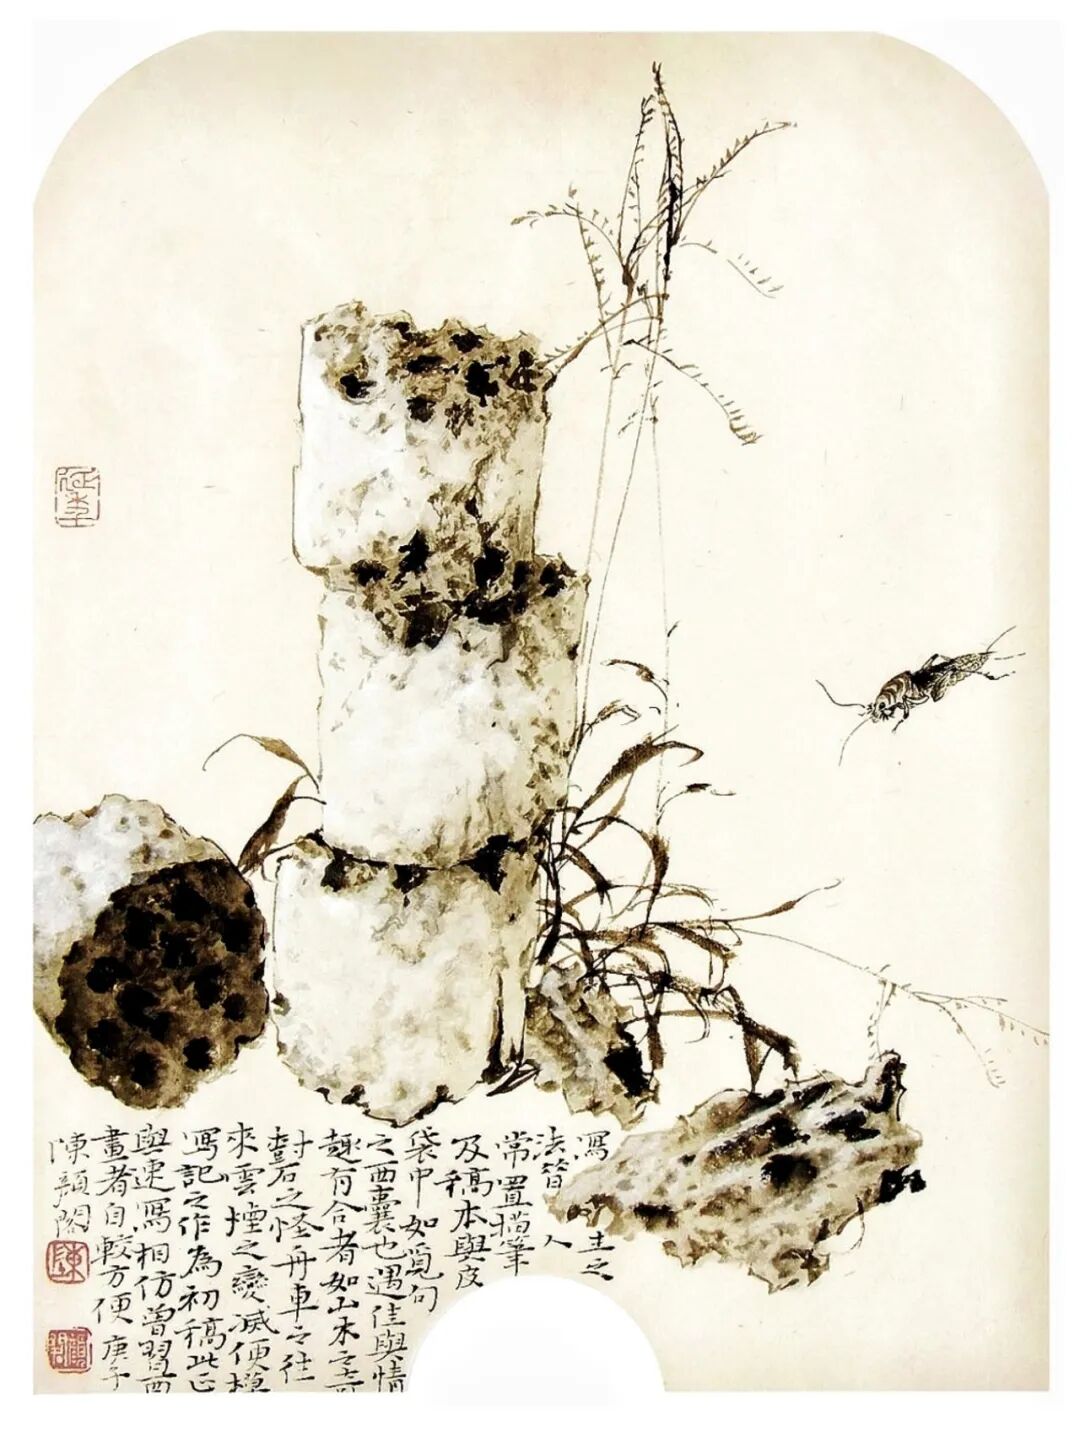 寫生之
法昔人
常置描筆
及稿本與皮
袋中如覓句
之西囊也遇佳興情
趣有合者如山木之奇
對石之怪舟車之往
來雲煙之變滅便模
寫記之作為初稿此正
與速寫相仿曽習西
畫者自較方便庚子
陳顏閣
陳